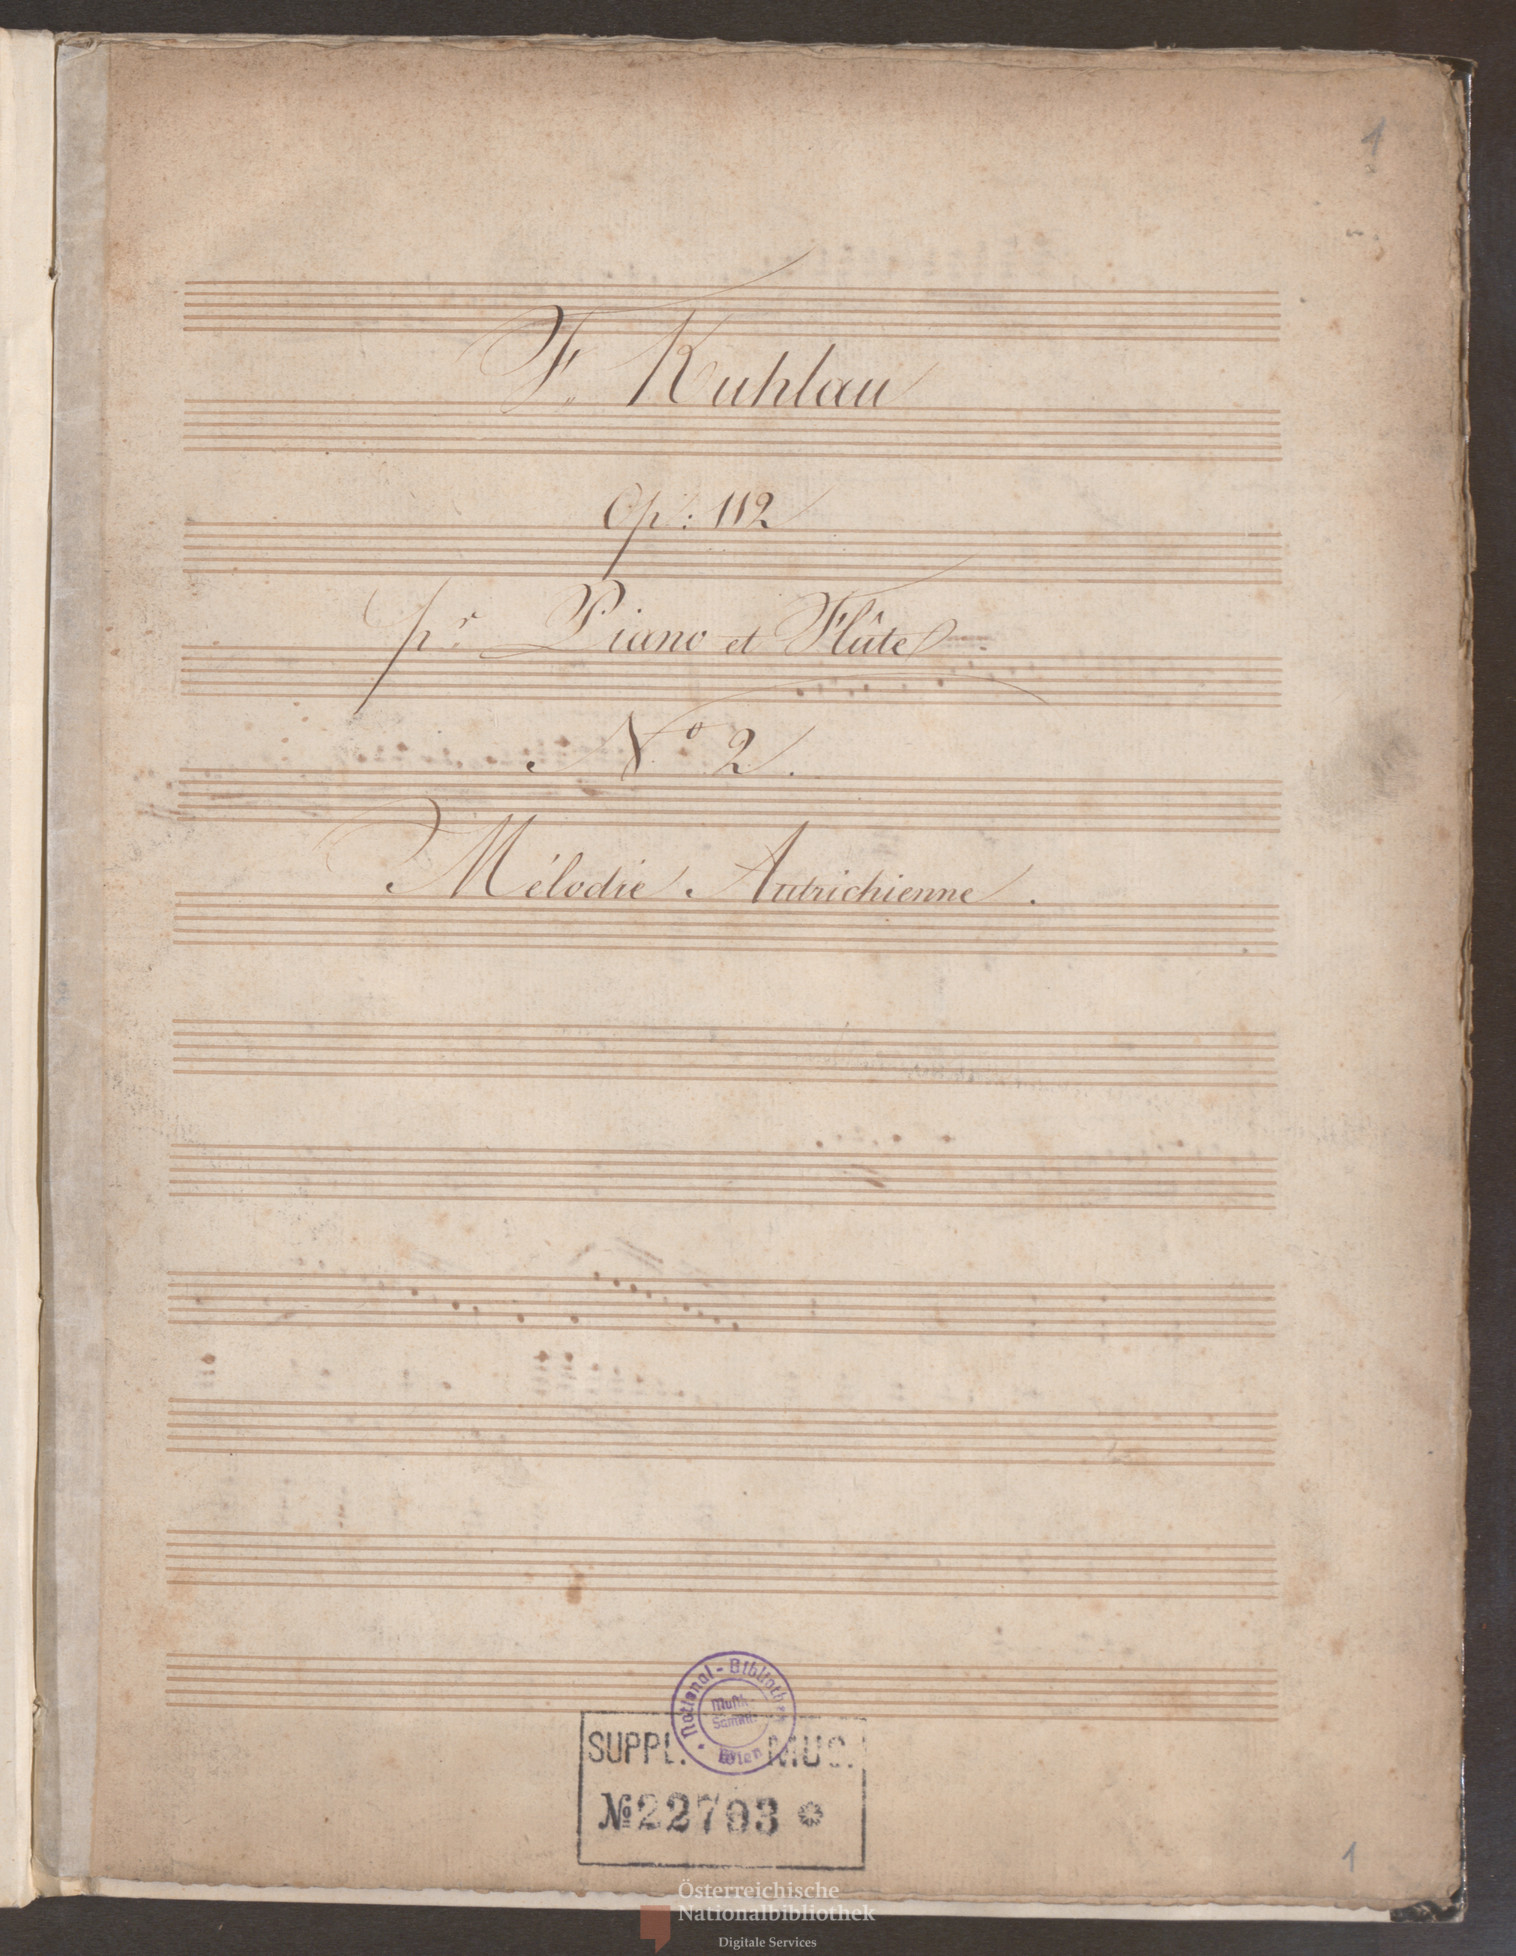 1
F. Kuhlau
Op: 112
pr Piano et Flûte
No 2.
Mélodie Autrichienne.
National-Bibliothek
Musik-
Samml.
Wien
SUPPL. MUS.
№ 22793 *
1
Österreichische
Nationalbibliothek
Digitale Services